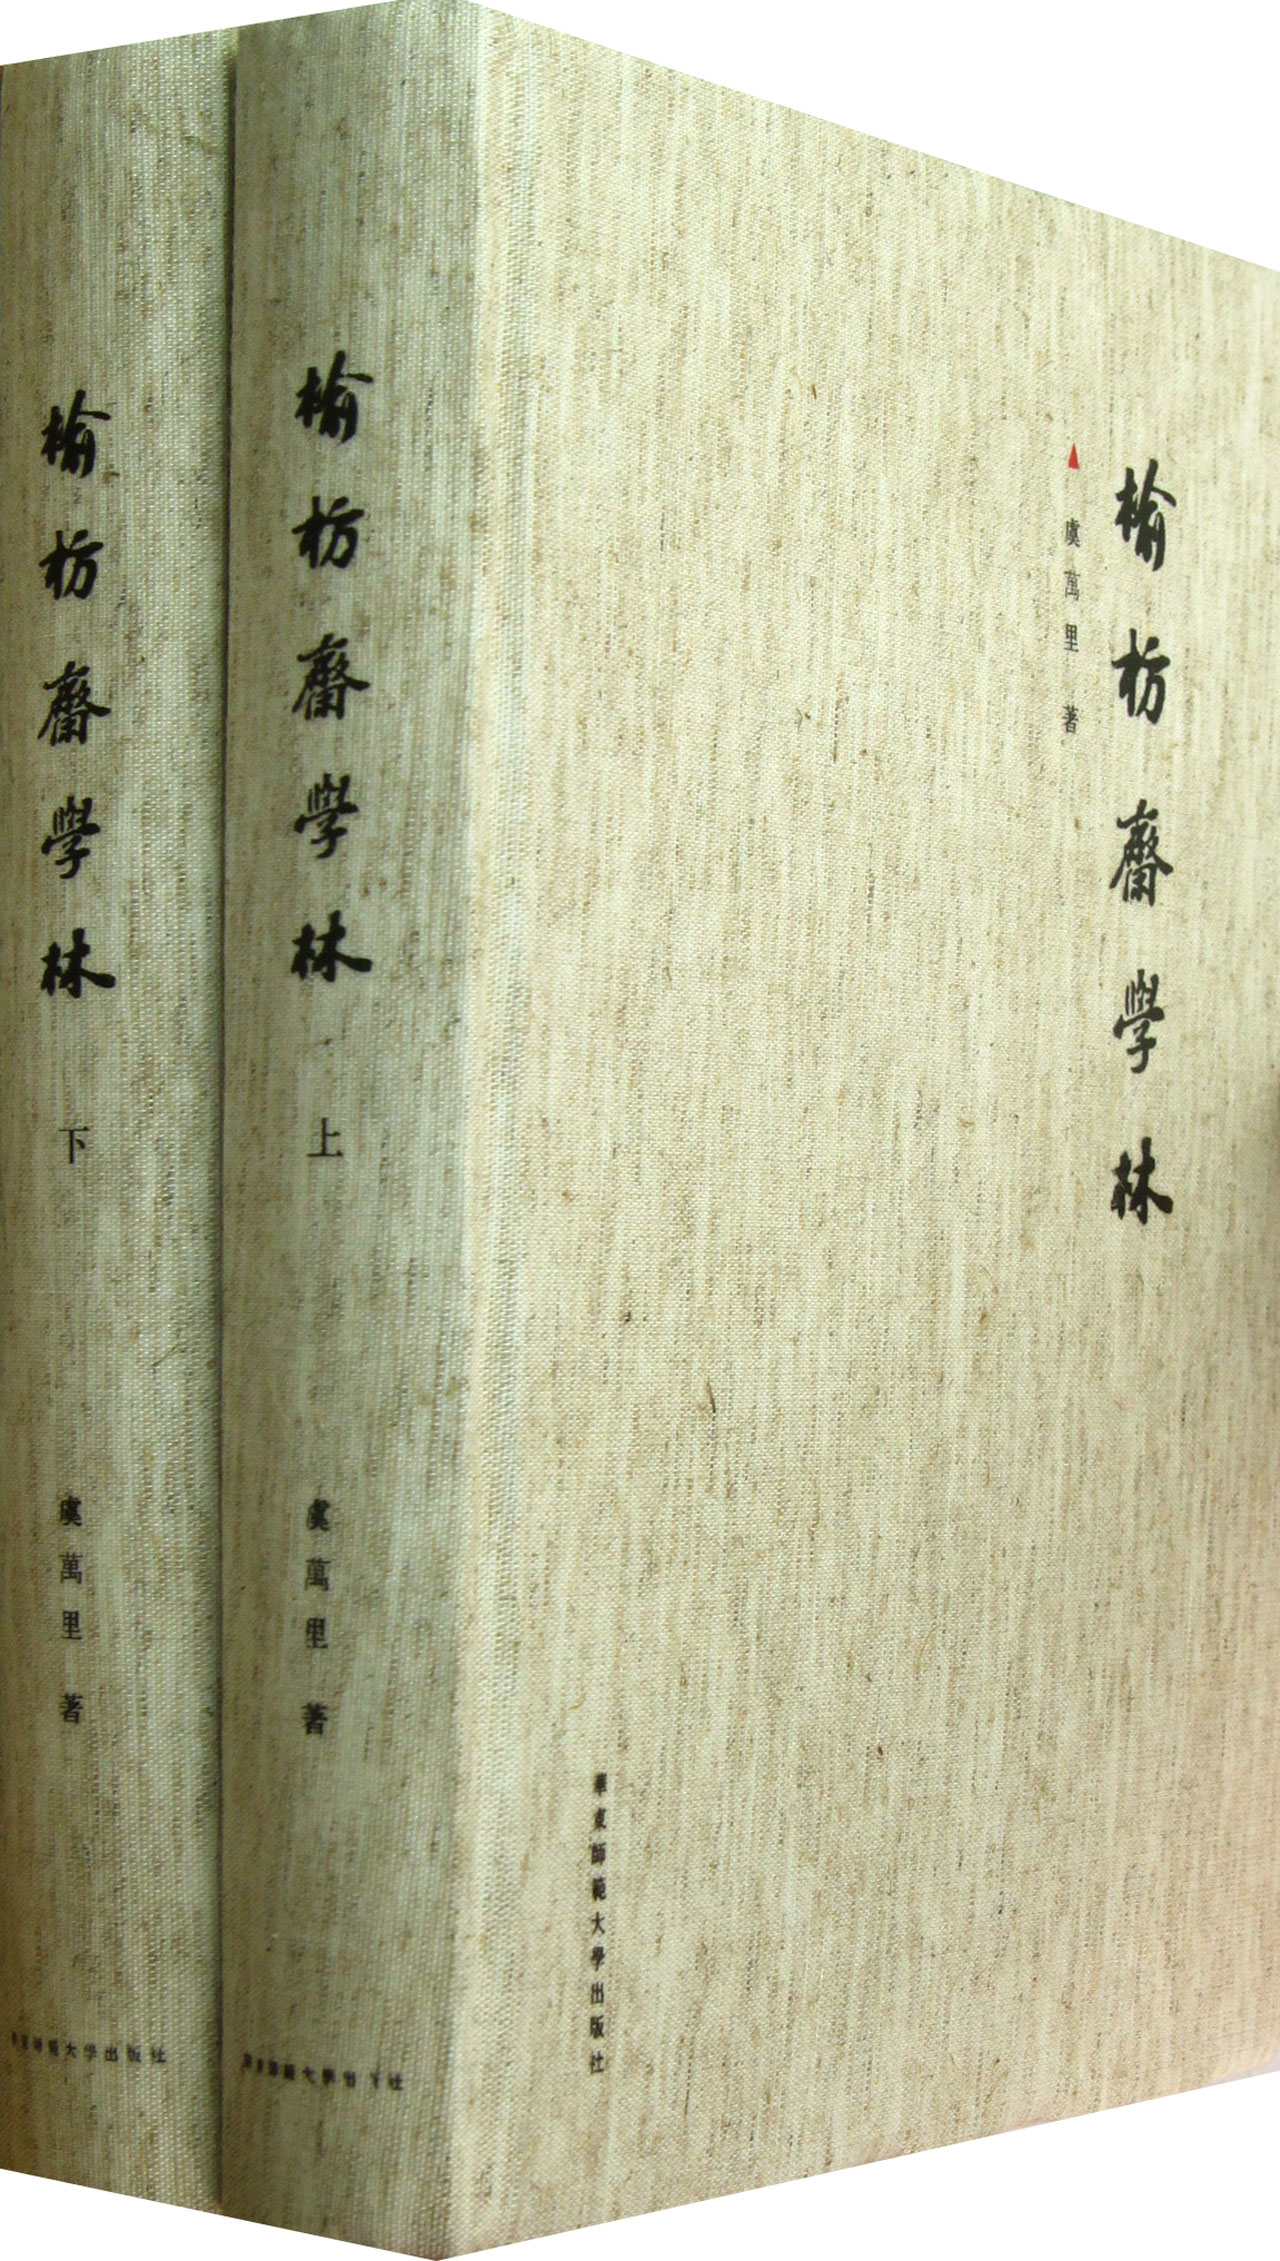 榆枋齋學林
虞萬里 著
華東師範大學出版社
榆枋齋學林 上
虞萬里 著
大學 社
榆枋齋學林 下
虞萬里 著
師範大学出版社